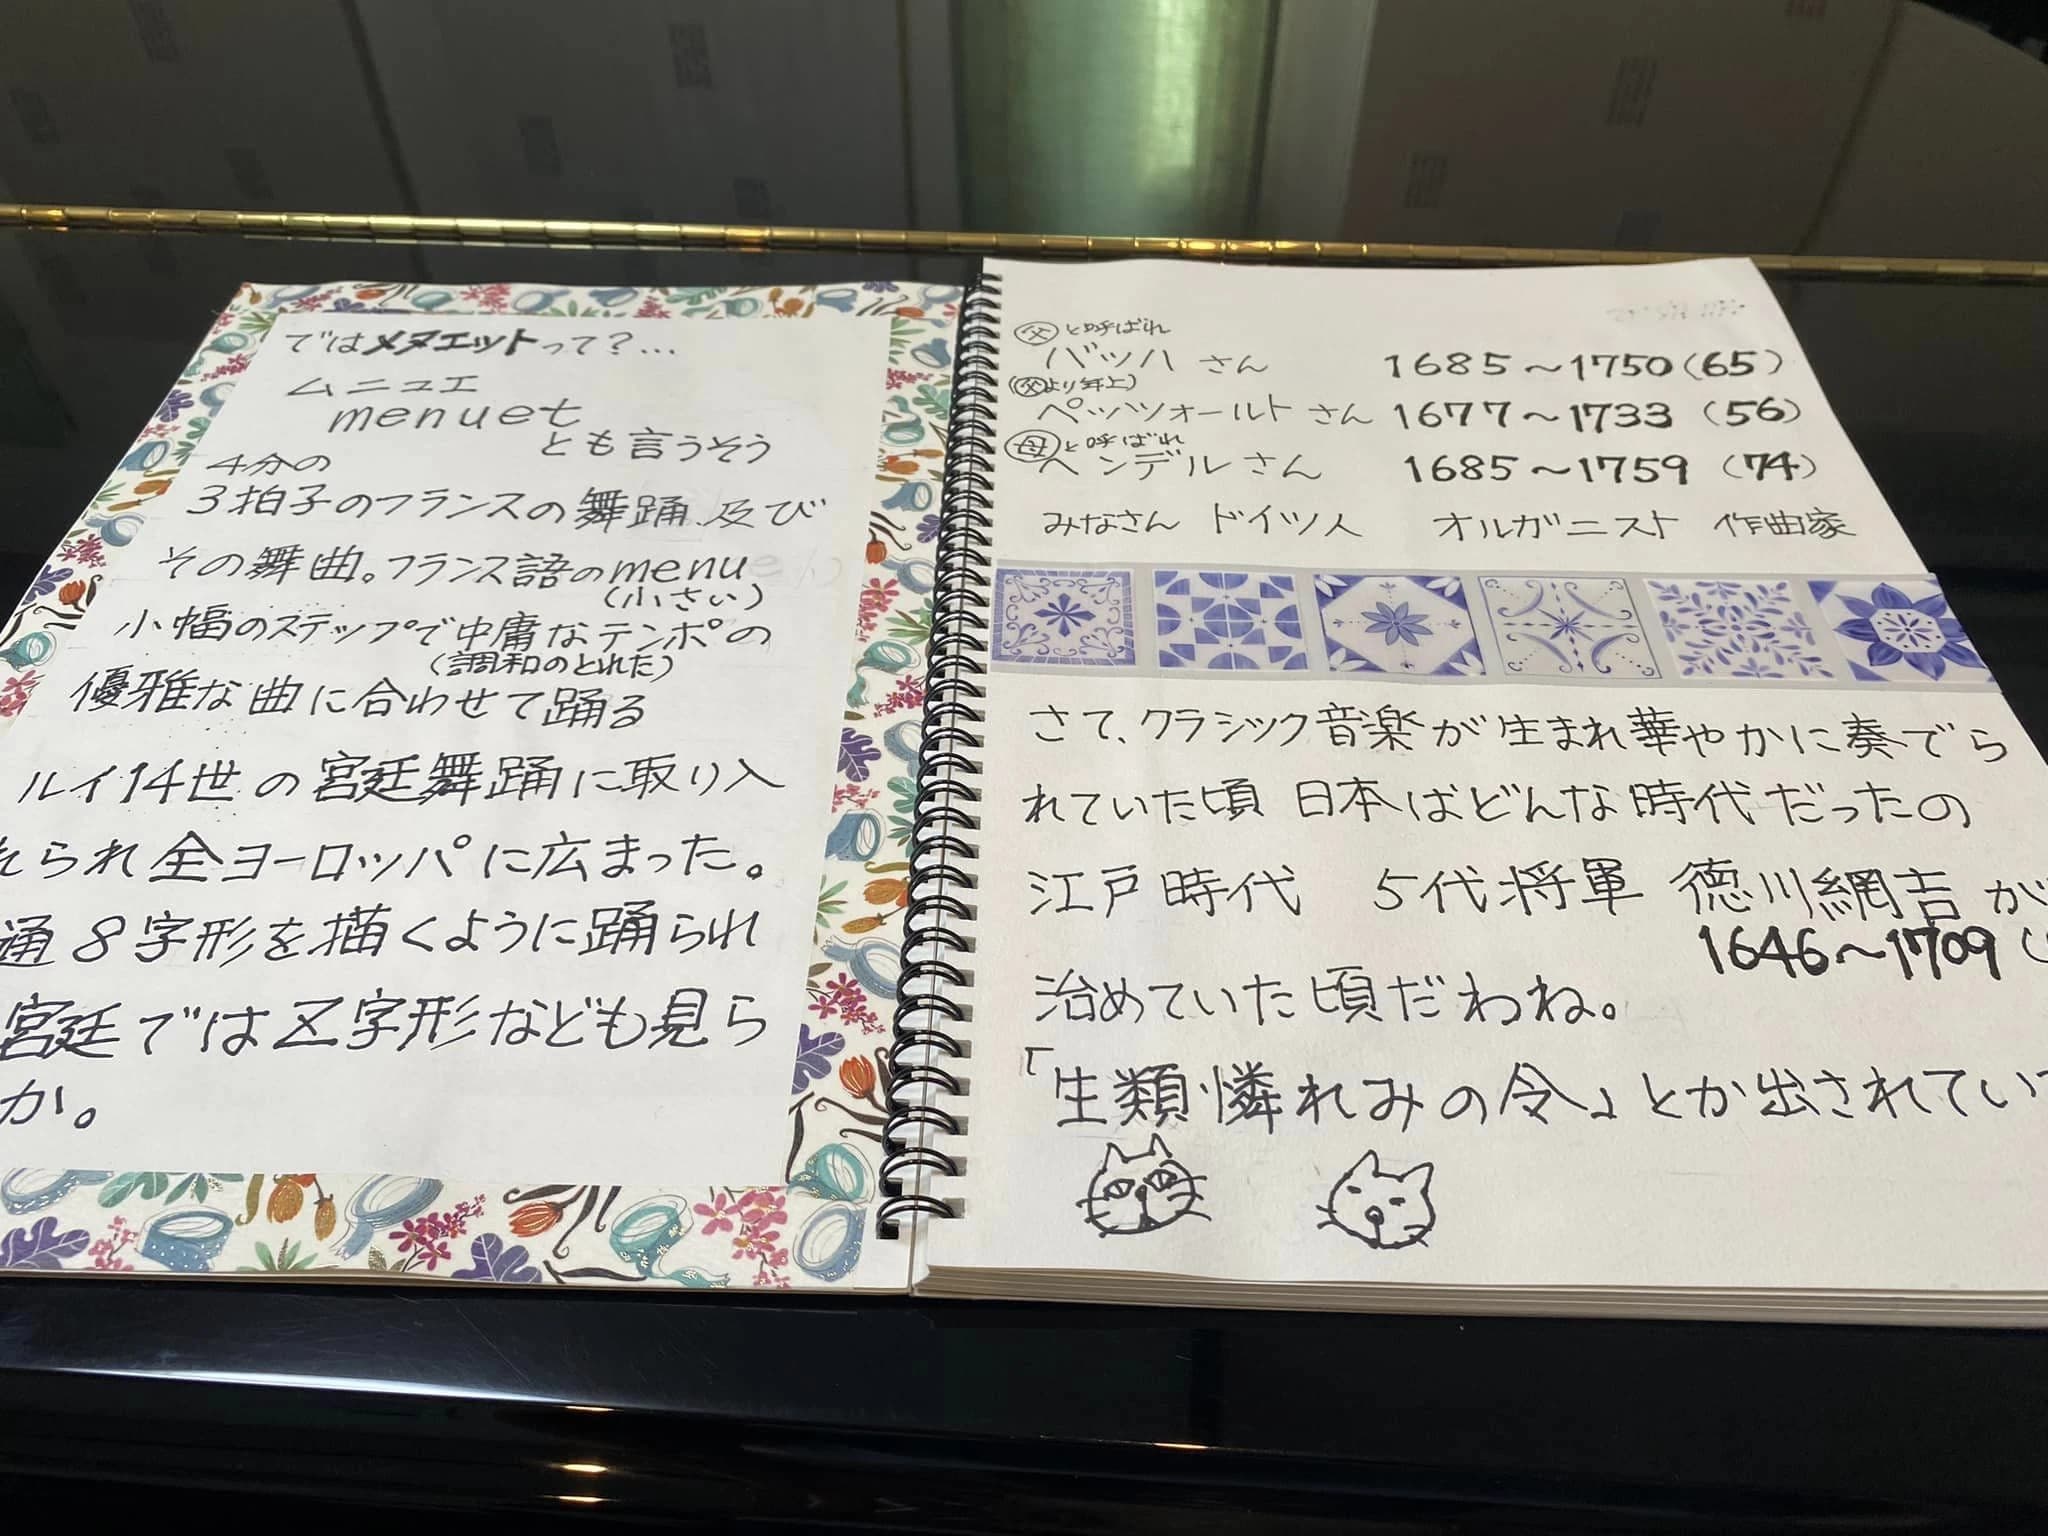 ではメヌエットって?...
ムニュエ
menuet
とも言うそう
4分の
3拍子のフランスの舞踊及び
その舞曲。フランス語のmenu
(小さい)
小幅のステップで中庸なテンポの
(調和のとれた)
優雅な曲に合わせて踊る
ルイ14世の宮廷舞踊に取り入
れられ全ヨーロッパに広まった。
通8字形を描くように踊られ
宮廷ではZ字形なども見ら
か。
父と呼ばれ
バッハさん 1685~1750(65)
(父より年上)
ペッツォールトさん 1677~1733(56)
母と呼ばれ
ヘンデルさん 1685~1759(74)
みなさん ドイツ人 オルガニスト 作曲家
さて、クラシック音楽が生まれ華やかに奏でら
れていた頃 日本はどんな時代だったの
江戸時代 5代将軍 徳川綱吉が
1646~1709(
治めていた頃だわね。
「生類憐れみの令」とか出されてい